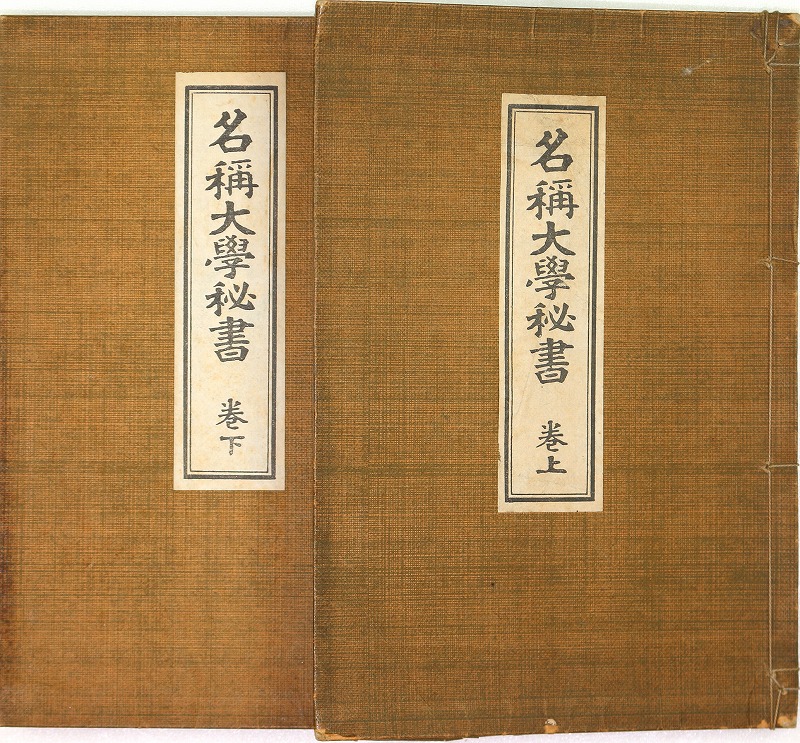 名稱大學秘書 卷上
名稱大學秘書 卷下